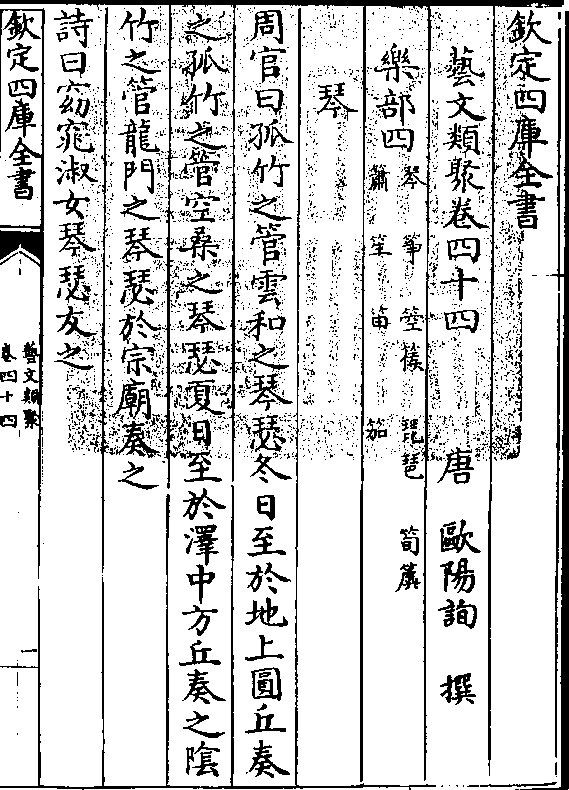 欽定四庫全書
藝文類聚卷四十四
唐 歐陽詢 撰
樂部四 琴 箏 箜篌 琵琶 筍簴
簫 笙 笛 笳
琴
周官曰孤竹之管雲和之琴瑟冬日至於地上圜丘奏
之孤竹之管空桑之琴瑟夏日至於澤中方丘奏之陰
竹之管龍門之琴瑟於宗廟奏之
詩曰窈窕淑女琴瑟友之
欽定四庫全書
藝文類聚
卷四十四
一